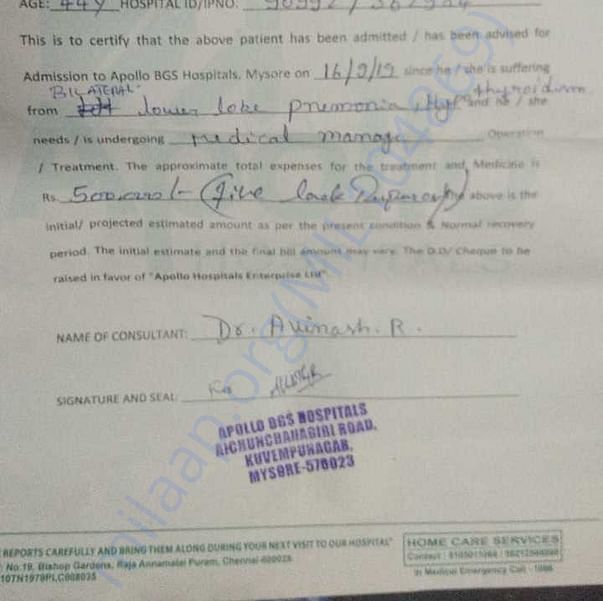 AGE: 44Y HOSPITAL ID/IPNO:
This is to certify that the above patient has been admitted / has been advised for
Admission to Apollo BGS Hospitals, Mysore on 16/9/19 since he / she is suffering
BILATERAL
from lower lobe pnemonia, and he / she
needs / is undergoing Medical manage Operation
/ Treatment. The approximate total expenses for the treatment and Medicine is
Rs. 500,000/- (Five lack Rupees) the above is the
initial/ projected estimated amount as per the present condition & Normal recovery
period. The initial estimate and the final bill amount may vary. The D.D/ Cheque to be
raised in favor of "Apollo Hospitals Enterprise Ltd".
NAME OF CONSULTANT: Dr. Avinash. R.
SIGNATURE AND SEAL:
APOLLO BGS HOSPITALS
AICHUNCHANAGIRI ROAD,
KUVEMPUNAGAR,
MYSORE-570023
REPORTS CAREFULLY AND BRING THEM ALONG DURING YOUR NEXT VISIT TO OUR HOSPITAL"
No.19, Bishop Gardens, Raja Annamalai Puram, Chennai-600028
HOME CARE SERVICES
In Medical Emergency Call - 1066
milaap.org